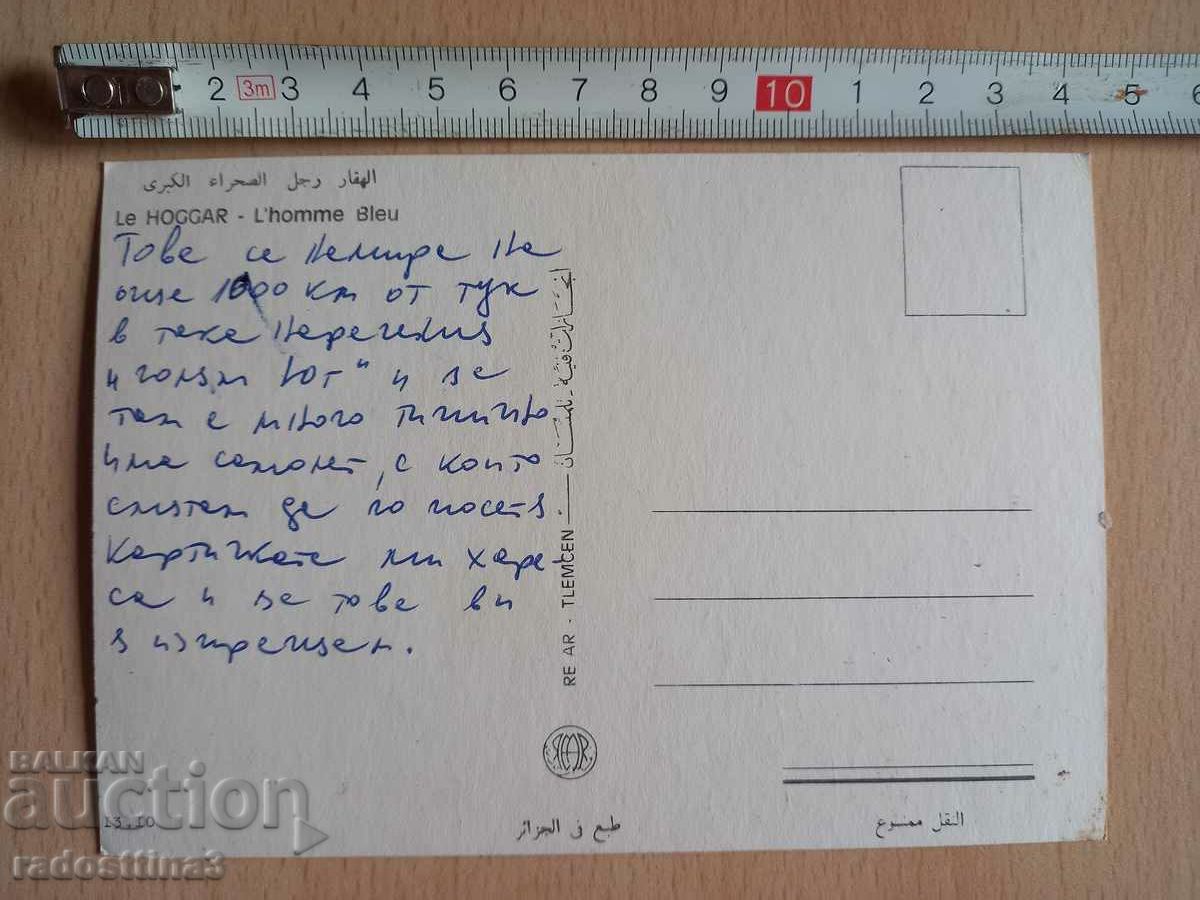 2 3m 3 4 5 6 7 8 9 10 1 2 3 4 5 6
الهقار رجل الصحراء الكبرى
Le HOGGAR - L'homme Bleu
Това се намира на
още 1000 км от тук
в така наречения
"голям юг" и за
там е много типично
има самолет, с който
смятам да го посетя
Картичката ми харе-
са и за това ви
я изпращам.
RE AR - TLEMCEN
13.10
طبع في الجزائر
النقل ممنوع
BALKAN
auction
radosttina3